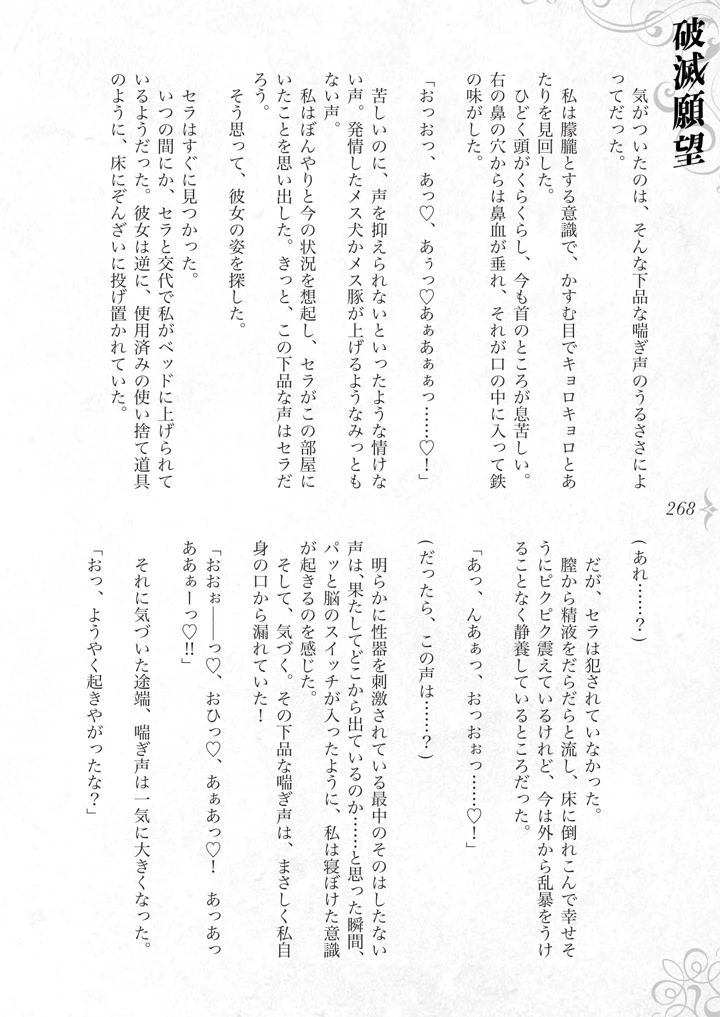 破滅願望
気がついたのは、そんな下品な喘ぎ声のうるささによ
ってだった。
私は朦朧とする意識で、かすむ目でキョロキョロとあ
たりを見回した。
ひどく頭がくらくらし、今も首のところが息苦しい。
右の鼻の穴からは鼻血が垂れ、それが口の中に入って鉄
の味がした。
「おっおっ、あっ♡、あぅっ♡あぁあぁぁっ……♡！」
苦しいのに、声を抑えられないといったような情けな
い声。発情したメス犬かメス豚が上げるようなみっとも
ない声。
私はぼんやりと今の状況を想起し、セラがこの部屋に
いたことを思い出した。きっと、この下品な声はセラだ
ろう。
そう思って、彼女の姿を探した。
セラはすぐに見つかった。
いつの間にか、セラと交代で私がベッドに上げられて
いるようだった。彼女は逆に、使用済みの使い捨て道具
のように、床にぞんざいに投げ置かれていた。
268
（あれ……？）
だが、セラは犯されていなかった。
膣から精液をだらだらと流し、床に倒れこんで幸せそ
うにピクピク震えているけれど、今は外から乱暴をうけ
ることなく静養しているところだった。
「あっ、んあぁっ、おっおぉっ……♡！」
（だったら、この声は……？）
明らかに性器を刺激されている最中のそのはしたない
声は、果たしてどこから出ているのか……と思った瞬間、
パッと脳のスイッチが入ったように、私は寝ぼけた意識
が起きるのを感じた。
そして、気づく。その下品な喘ぎ声は、まさしく私自
身の口から漏れていた！
「おおぉ――っ♡、おひっ♡、あぁあっ♡！　あっあっ
ああぁーっ♡!!」
それに気づいた途端、喘ぎ声は一気に大きくなった。
「おっ、ようやく起きやがったな？」